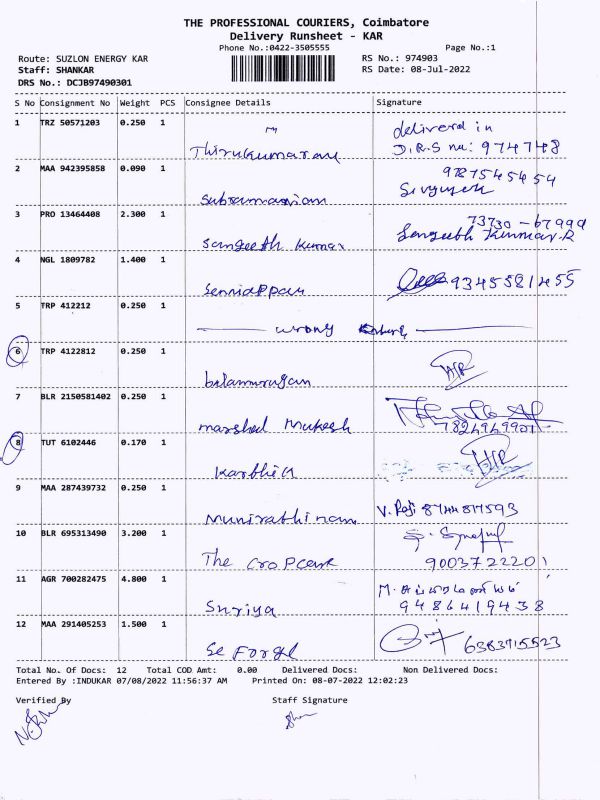 THE PROFESSIONAL COURIERS, Coimbatore
Delivery Runsheet - KAR
Phone No.:0422-3505555 Page No.:1
Route: SUZLON ENERGY KAR RS No.: 974903
Staff: SHANKAR RS Date: 08-Jul-2022
DRS No.: DCJB97490301
S No Consignment No Weight PCS Consignee Details Signature
1 TRZ 50571203 0.250 1 delivered in
Thirukumaran D.R.S no: 974748
2 MAA 942395858 0.090 1 9787545454
Subramanian
3 PRO 13464408 2.300 1 73730-67999
Sangeeth Kumar Sangeeth Kumar.R
4 NGL 1809782 1.400 1 9345581455
Senniappan
5 TRP 412212 0.250 1
wrong
6 TRP 4122812 0.250 1
balamurugan
7 BLR 2150581402 0.250 1
Marshal Mukesh
8 TUT 6102446 0.170 1
Karthick
9 MAA 287439732 0.250 1 V. Raji 8744817593
Munirathinam
10 BLR 695313490 3.200 1
The CroPcare 9003722201
11 AGR 700282475 4.800 1
Suriya 9486419438
12 MAA 291405253 1.500 1 6383715523
Se Forge
Total No. Of Docs: 12 Total COD Amt: 0.00 Delivered Docs: Non Delivered Docs:
Entered By :INDUKAR 07/08/2022 11:56:37 AM Printed On: 08-07-2022 12:02:23
Verified By Staff Signature